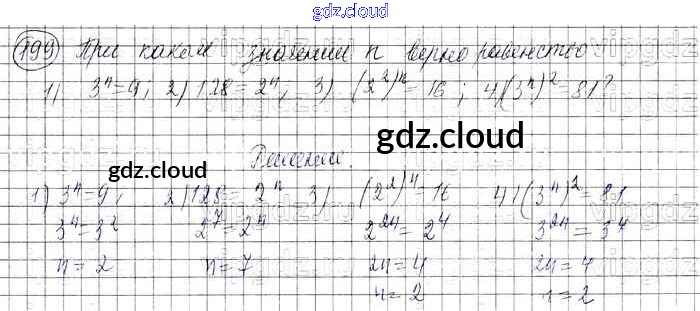 gdz.cloud
199 При каком значении n верно равенство
1) 3ⁿ=9; 2) 128=2ⁿ, 3) (2²)ⁿ=16; 4) (3ⁿ)²=81?
gdz.cloud
gdz.cloud
Решение.
1) 3ⁿ=9; 2) 128=2ⁿ 3) (2²)ⁿ=16 4) (3ⁿ)²=81
3ⁿ=3² 2⁷=2ⁿ 2²ⁿ=2⁴ 3²ⁿ=3⁴
n=2 n=7 2n=4 2n=4
n=2 n=2